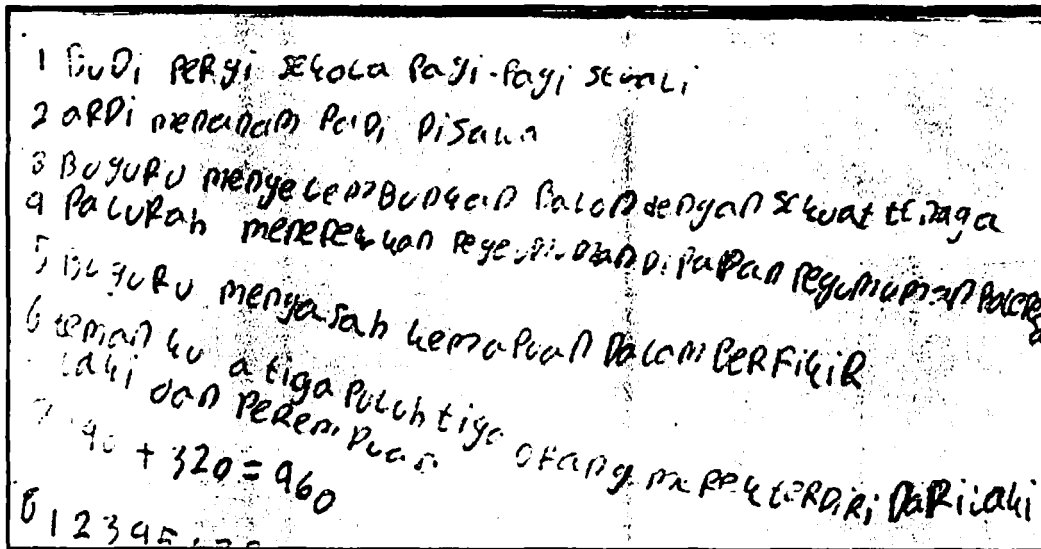 1 BuDi PERgi sekola Pagi-Pagi sekali
2 aRDi menanam PaDi Disawa
3 BuguRu menyelemBungkan Balon dengan sekuat tenaga
4 PaluRah menepelkan DiPaPan
5 BuguRu mengasah kemaPuan Dalam BERFikiR
6 teman ku a tiga Puluh tiga orang merek tERDiRi DaRi laki
laki dan PeRemPuan
7 + 320 = 960
8 12345